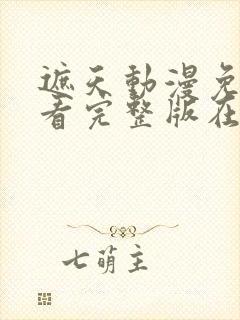 遮天動漫免
看完整版在
七萌主